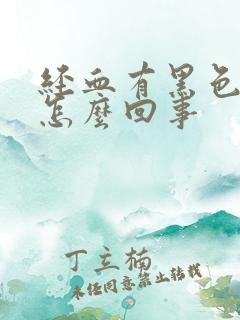 經血有黑色
怎麼回事
丁立楠
未经同意禁止转载